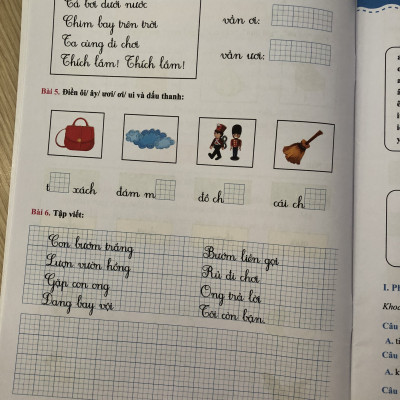 Cá bơi dưới nước
Chim bay trên trời
Ta cùng đi chơi
Thích lắm! Thích lắm!
vần ơi:
vần ươi:
Bài 5. Điền ôi/ ây/ ươi/ ơi/ ui và dấu thanh:
t xách
đám m
đồ ch
cái ch
Bài 6. Tập viết:
Con bướm trắng
Lượn vườn hồng
Gặp con ong
Đang bay vội
Bướm liền gọi
Rủ đi chơi
Ong trả lời
Tôi còn bận.
I. P
Khoa
Câu
A. t
Câu
A. k
Câu